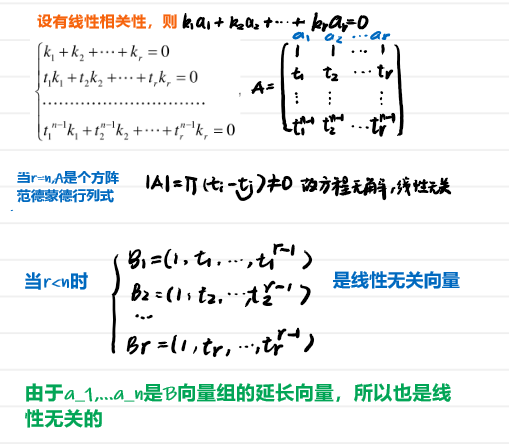 设有线性相关性，则 k₁a₁+k₂a₂+…+kᵣaᵣ=0
a₁ a₂ … aᵣ
k₁+k₂+⋯+kᵣ=0
t₁k₁+t₂k₂+⋯+tᵣkᵣ=0
..............................
t₁ⁿ⁻¹k₁+t₂ⁿ⁻¹k₂+⋯+tᵣⁿ⁻¹kᵣ=0
,
A=
1 1 … 1
t₁ t₂ … tᵣ
⋮ ⋮ ⋮
t₁ⁿ⁻¹ t₂ⁿ⁻¹ … tᵣⁿ⁻¹
当r=n,A是个方阵
范德蒙德行列式
|A|=∏(tᵢ-tⱼ)≠0 故方程无解,线性无关
当r<n时
B₁=(1,t₁,…,t₁ʳ⁻¹)
B₂=(1,t₂,…,t₂ʳ⁻¹)
…
Br=(1,tᵣ,…,tᵣʳ⁻¹)
是线性无关向量
由于a_1,...a_n是B向量组的延长向量，所以也是线
性无关的